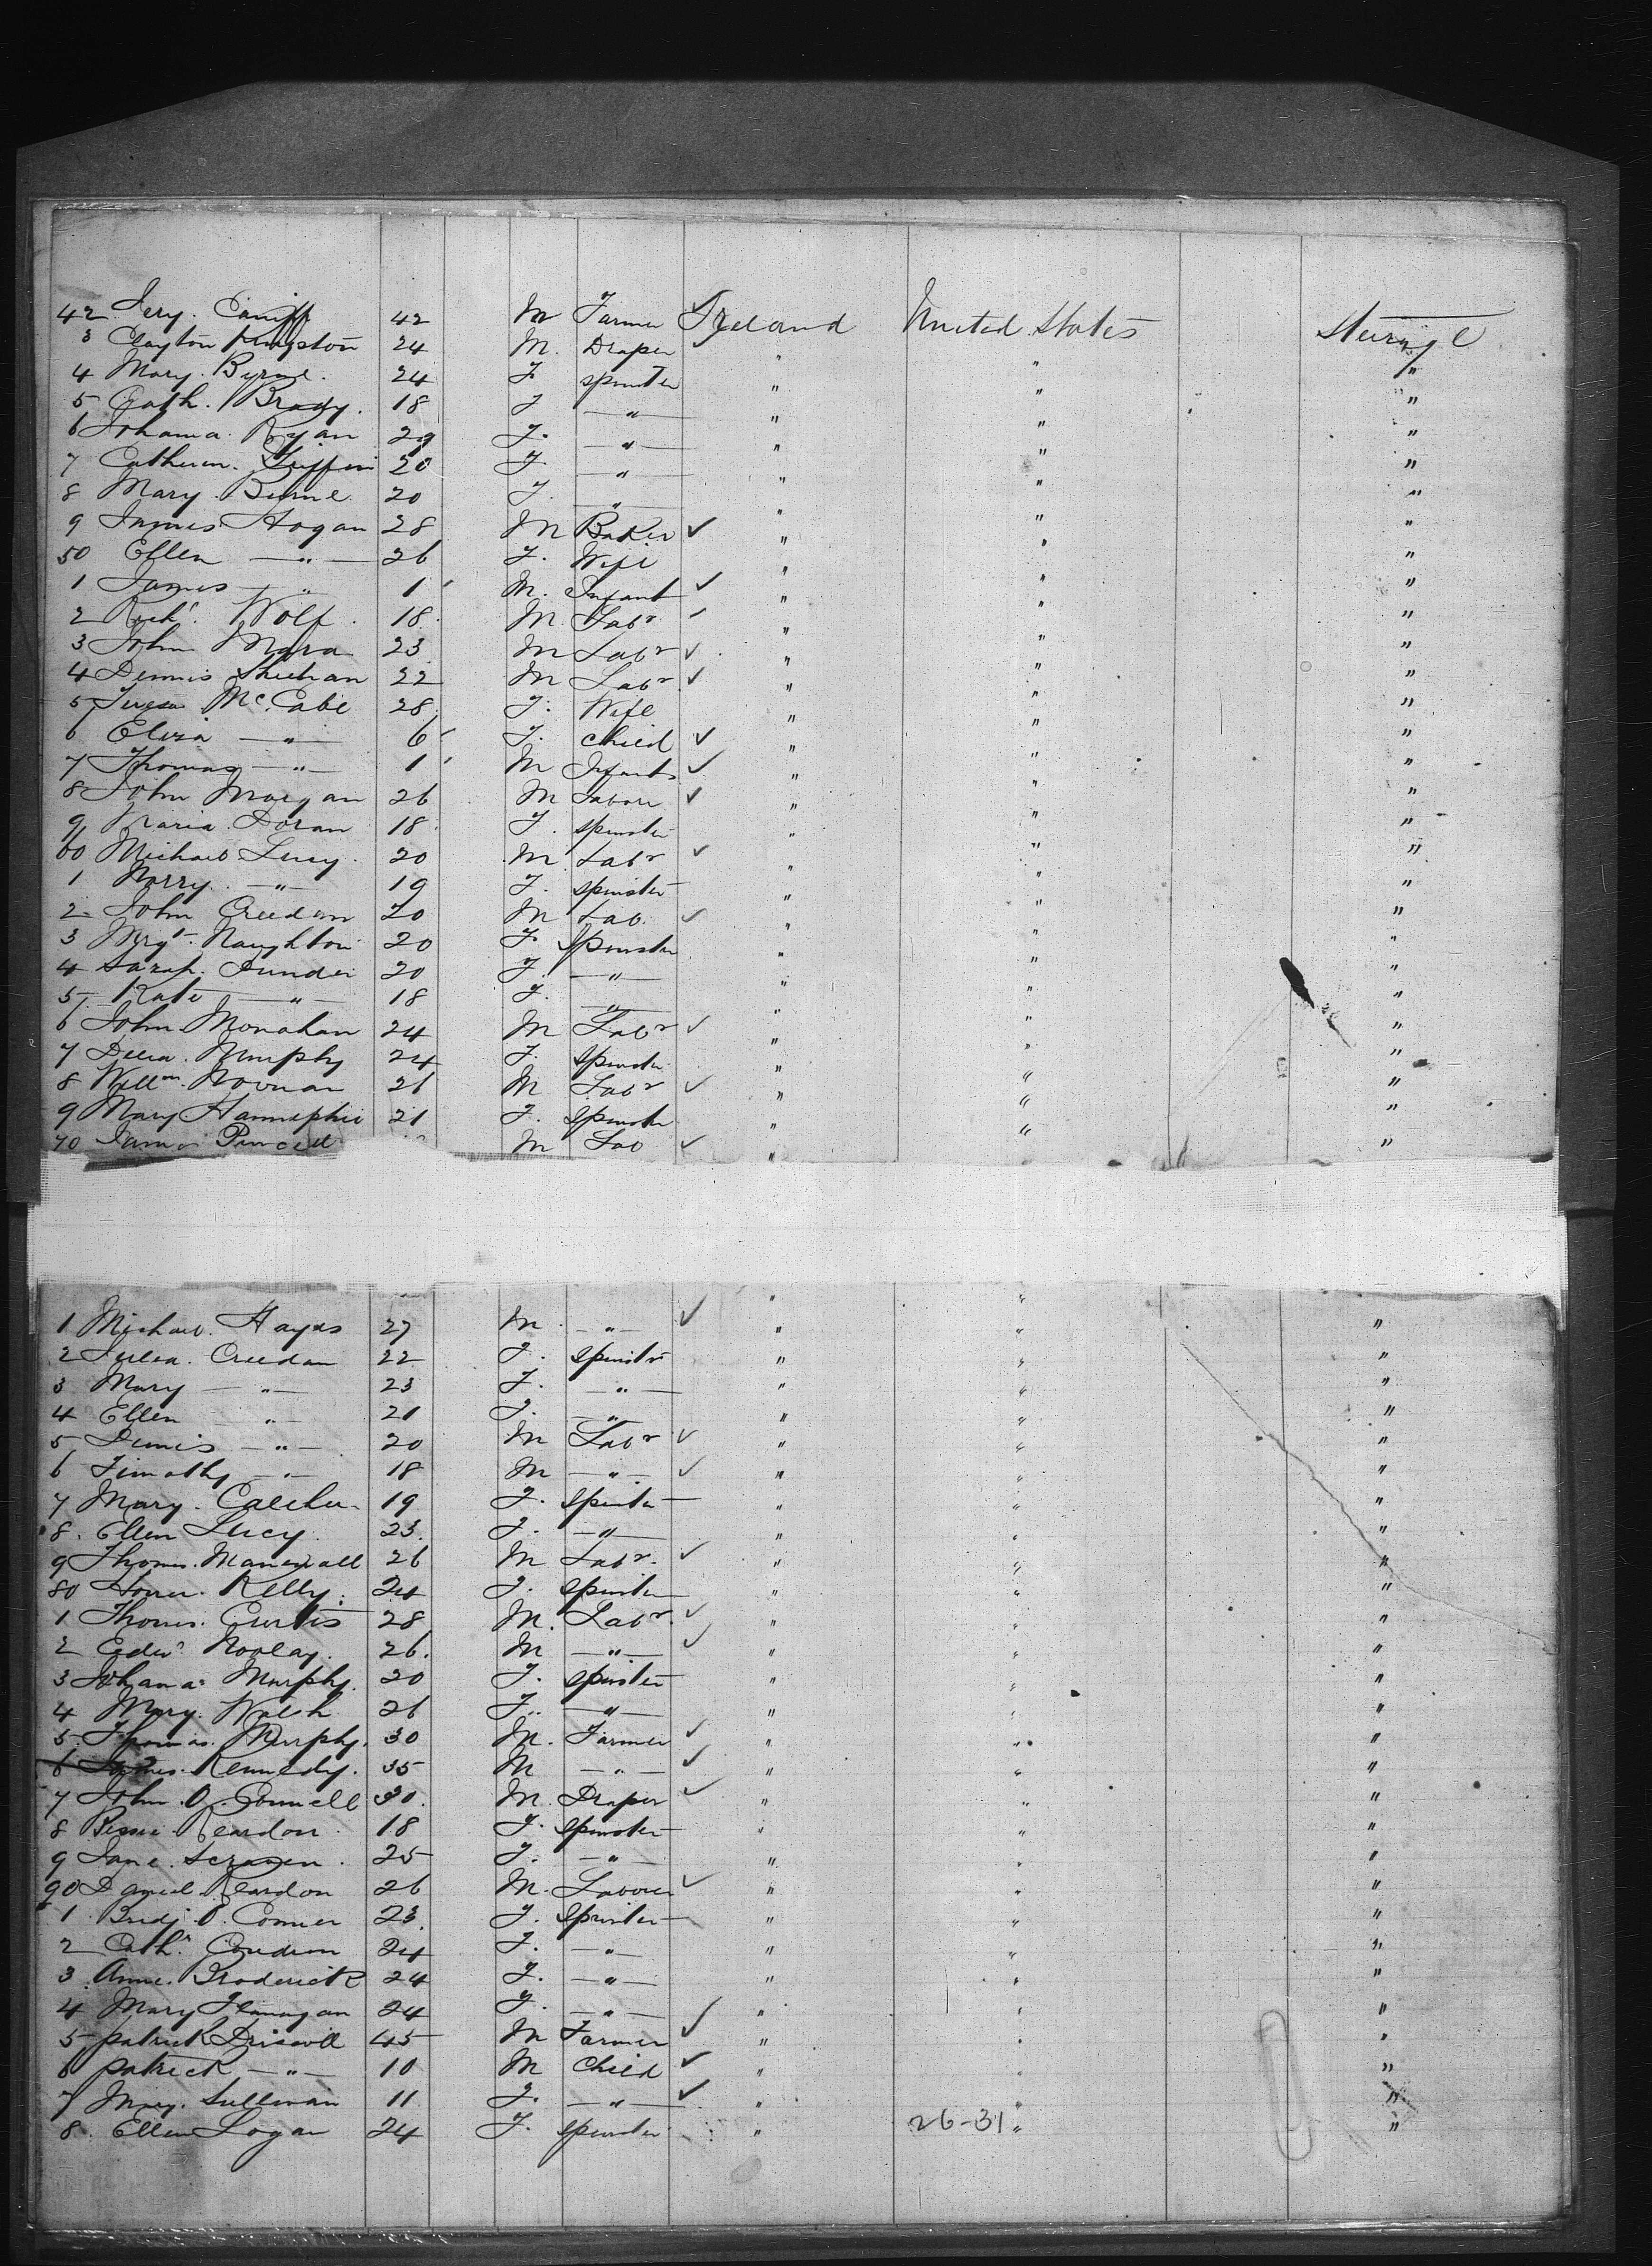 42 Jery. Caniff 42 M Farmer Ireland United States Steerage
3 Clayton Kingston 24 M. Draper " " "
4 Mary. Byrne. 24 F spinster " " "
5 Cath. Brady. 18 F — " — " " "
6 Johanna. Ryan 29 F. — " — " " "
7 Catherin. Griffin 20 F. — " — " " "
8 Mary. Birne 20 F. — " — " " "
9 James Hogan 28 M Baker ✓ " " "
50 Ellen — " — 26 F. Wife " " "
1 James — " 1 M. Infant ✓ " " "
2 Richd. Wolf. 18. M. Labr ✓ " " "
3 John Mara 23 M Labr ✓ " " "
4 Dennis Sheehan 22 M Labr. ✓ " " "
5 Teresa McCabe 28 F. Wife " " "
6 Eliza — " — 6 F. child ✓ " " "
7 Thomas — " — 1 M Infant ✓ " " "
8 John Morgan 26 M Labore ✓ " " "
9 Maria. Doran 18 F. spinster " " "
60 Michael Lucy. 20 M Labr ✓ " " "
1 Norry. — " — 19 F. spinster " " "
2 John Creedan 20 M Lab. ✓ " " "
3 Mrgt. Naughton 20 F. Spinster " " "
4 Sarah. 20 F. — " — " " "
5 Kate — " — 18 F. — " — " " "
6 John Monahan 24 M Labr ✓ " " "
7 Delia. Murphy 24 F. Spinster " " "
8 Willm. Noonan 21 M Labr ✓ " " "
9 Mary 21 F. Spinster " " "
70 James Purcell M Lab ✓ " "
1 Michael. Hayes 27 M — " — ✓ " " "
2 Julia. Creedan 22 F. Spinstr " " "
3 Mary — " — 23 F. — " — " " "
4 Ellen — " — 21 F. — " — " " "
5 Dennis — " — 20 M Labr ✓ " " "
6 Timothy — " — 18 M — " — ✓ " " "
7 Mary. 19 F. Spinster " " "
8. Ellen Lucy. 23. F. — " — " " "
9 Thomas. 26 M Labr. ✓ " " "
80 Kelly. 24 F. Spinster " " "
1 Thomas. Curtis 28 M. Labr. ✓ " " "
2 Edwd 26. M — " — ✓ " " "
3 Johana. Murphy. 20 F. spinster " " "
4 Mary. Walsh 26 F. — " — " " "
5. Thomas. Murphy. 30 M. Farmer ✓ " " "
6 James. Kennedy. 35 M — " — ✓ " " "
7 John. O. Connell 30. M. Draper ✓ " " "
8 Bessie Reardon. 18 F. Spinster " " "
9 Jane. 25 F. — " — " " "
90 Daniel. Reardon 26 M. Laborer ✓ " " "
1. Bridj. O. Conner 23. F. Spinster " " "
2 Cathn. 24 F. — " — " " "
3. Anne. Broderick 24 F. — " — " " "
4 Mary Flanagan 24 F. — " — " " "
5 Patrick Driscoll 45 M Farmer ✓ " " "
6 Patrick — " — 10 M Child ✓ " " "
7 Mary. Sullivan 11 F. — " — ✓ " " "
8. Ellen Logan 24 F. Spinster " 26-31 " "